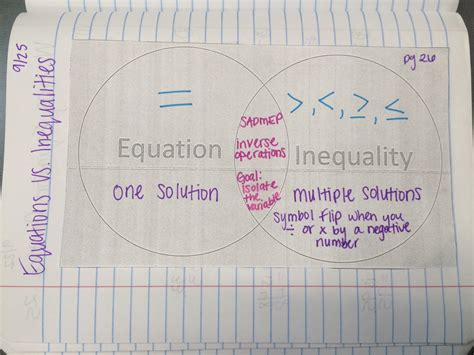 9/25
Equations vs. Inequalities
pg 26
=
Equation
one solution
SADMEP
inverse
operations
Goal:
isolate
the
variable
>, <, ≥, ≤
Inequality
multiple solutions
Symbol flip when you
÷ or x by a negative
number